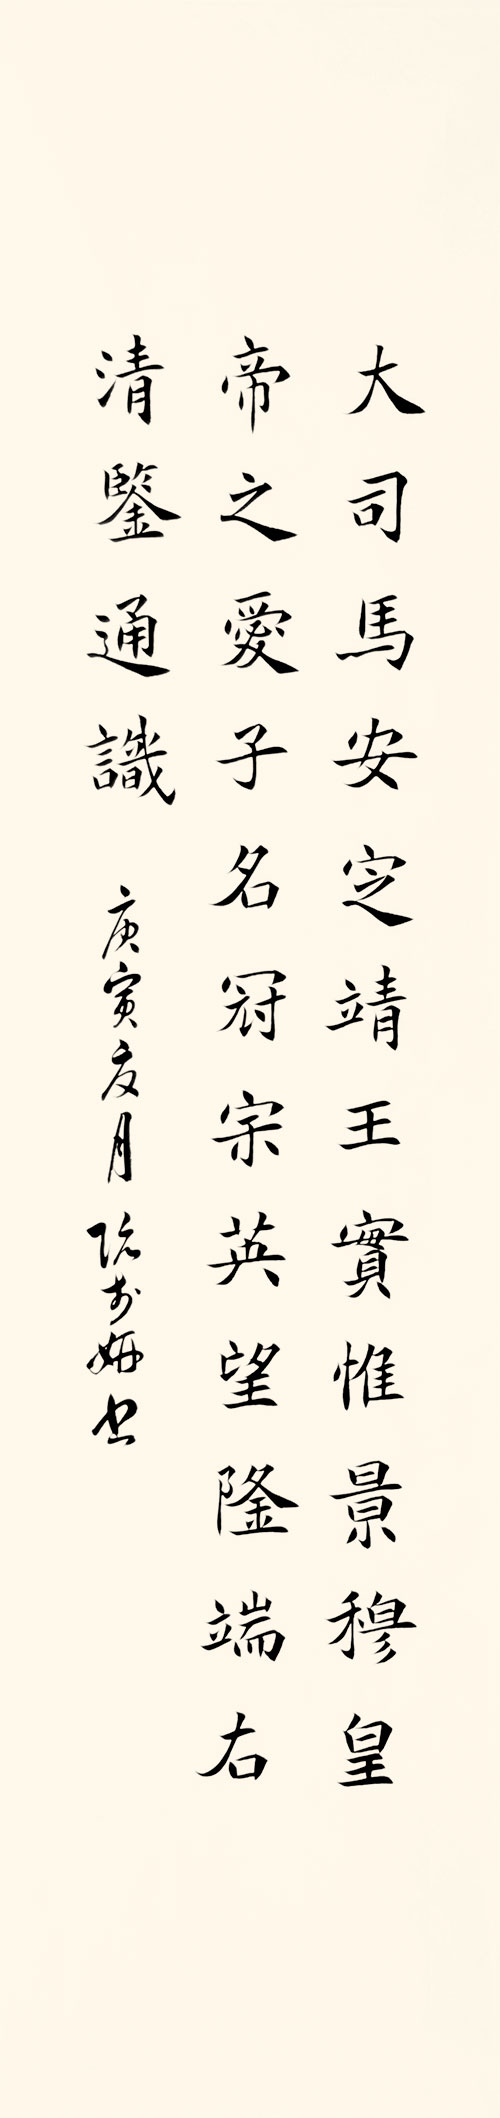 大司馬安定靖王實惟景穆皇
帝之愛子名冠宗英望隆端右
清鑒通識
庚寅夏月